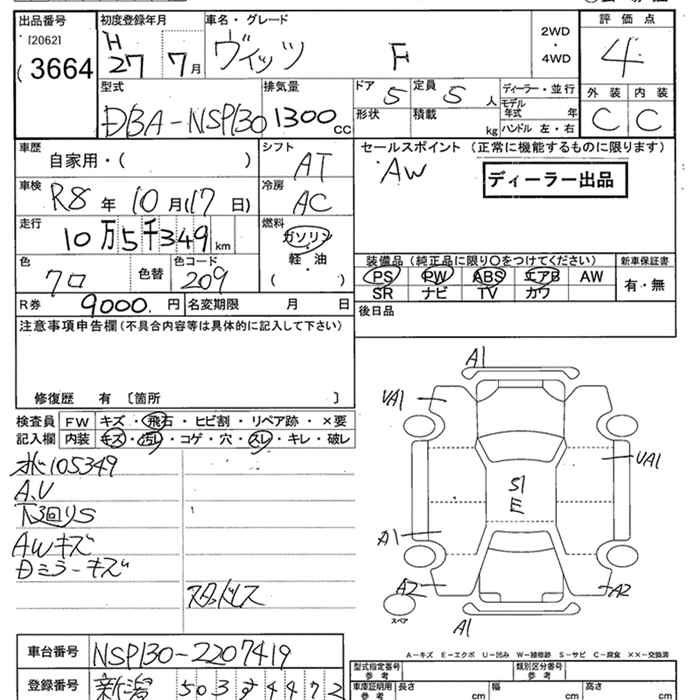 出品番号 初度登録年月 車名・グレード 評価点
[2062] H 2WD
3664 27 7月 ヴィッツ F ・ 4
4WD
外装 内装
型式 排気量 ドア 5 定員 5 人 ディーラー・並行 C C
DBA-NSP130 1300 cc 形状 積載 kg モデル年式 年
ハンドル 左・右
車歴 シフト セールスポイント (正常に機能するものに限ります)
自家用・( ) AT AW ディーラー出品
車検 R8年 10月(17日) 冷房 AC
走行 10万5千349 km 燃料 ガソリン・軽・油 ( )
装備品 (純正品に限り〇をつけてください) 新車保証書
色 クロ 色替 色コード 209 PS PW ABS エアB AW 有・無
SR ナビ TV カワ
R券 9000.円 名変期限 月 日 後日品
注意事項申告欄(不具合内容等は具体的に記入して下さい)
修復歴 有 〔箇所 〕
検査員 FW キズ・飛石・ヒビ割・リペア跡・×要
記入欄 内装 キズ・汚レ・コゲ・穴・スレ・キレ・破レ
105349
A,V
下回りS
AWキズ
Dミラーキズ
スタッドレス
A1
VA1
VA1
S1
E
A1
A2
A2
A1
スペア
A-キズ E-エクボ U-凹み W-補修跡 S-サビ C-腐食 ××-交換済
車台番号 NSP130-2207419
登録番号 新潟 503 す 4472
型式指定番号 参考 類別区分番号 参考
車庫証明用 参考 長さ cm 幅 cm 高さ cm